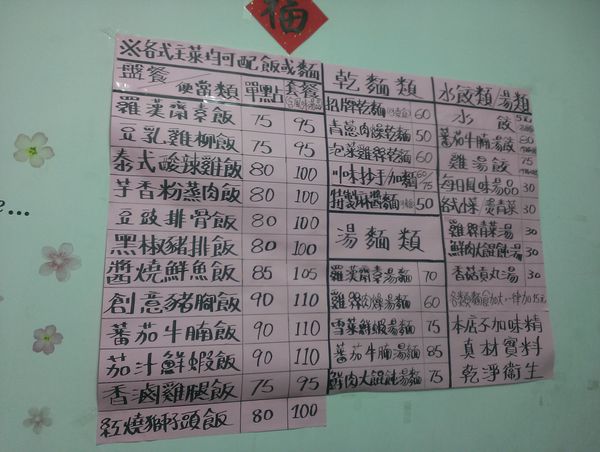 福
※各式主菜均可配飯或麵
盤餐/便當類 單點 套餐
羅漢齋素飯 75 95
豆乳雞柳飯 75 95
泰式酸辣雞飯 80 100
芋香粉蒸肉飯 80 100
豆豉排骨飯 80 100
黑椒豬排飯 80 100
醬燒鮮魚飯 85 105
創意豬腳飯 90 110
蕃茄牛腩飯 90 110
茄汁鮮蝦飯 90 110
香滷雞腿飯 75 95
紅燒獅子頭飯 80 100
乾麵類
招牌乾麵 60
青蔥肉燥乾麵 50
泡菜雞絲乾麵 60
川味抄手加麵 60/75
特製麻醬麵 50
湯麵類
羅漢齋素湯麵 70
雞絲肉燥湯麵 60
雪菜鮮蝦湯麵 75
蕃茄牛腩湯麵 85
鮮肉大餛飩湯麵 75
水餃類/湯類
水餃
蕃茄牛腩湯餃 80
雞湯餃 75
每日風味湯品 30
燙青菜 30
雞絲青菜湯 30
鮮肉大餛飩湯
香菇貢丸湯 30
本店不加味精
真材實料
乾淨衛生